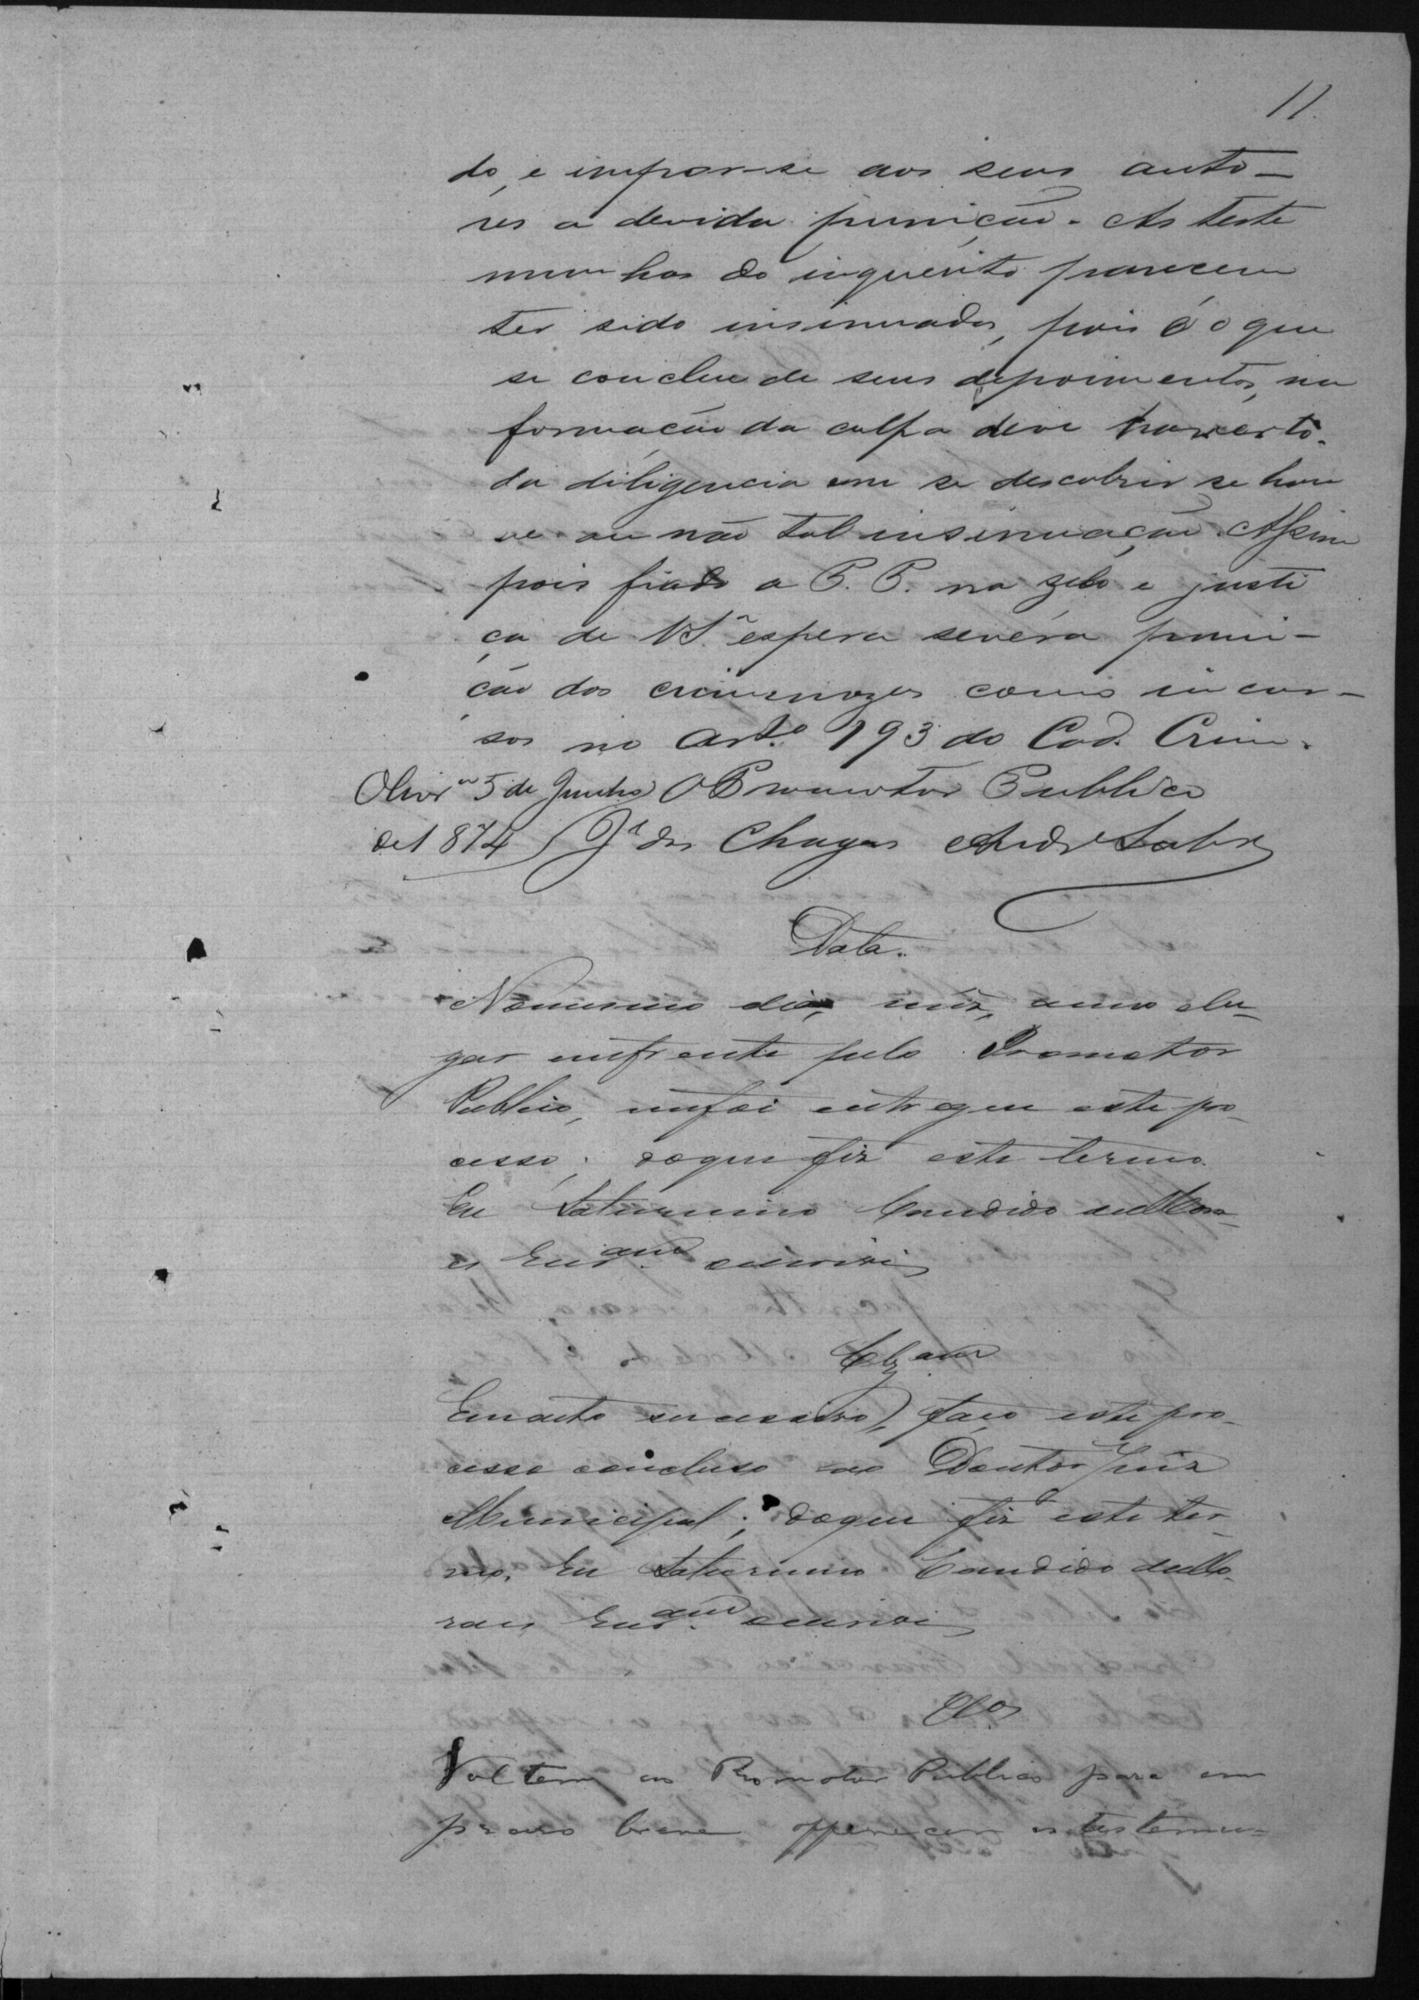 11.
do, e impor-se aos seus auto-
res a devida punição. As teste
munhas do inquerito parecem
ter sido insinuadas, pois é o que
se conclue de seus depoimentos, na
formação da culpa deve haver to-
da diligencia em se descobrir se hou
ve ou não tal insinuação. Assim
pois fiado a P. P. no zelo e justi
ça de V S.ª espera severa puni-
ção dos criminozos como incur-
sos no art.º 193 do Cod. Crim.
Olivr.ª 5 de Junho O Promotor Publico
de 1874 J.ª das Chagas Andr.
Data.
No mesmo dia, mez, anno e lu-
gar em frente pelo Promotor
Publico, me foi entregue este pro-
cesso; do que fiz este termo.
Eu Saturnino Candido de Mora-
es Escr.am escrivi
Clzam
Em acto sucessivo, faço este pro-
cesso concluso ao Doutor Juiz
Municipal; do que fiz este ter-
mo. Eu Saturnino Candido de Mo-
raes escrivi
Cl.os
Voltem ao Promotor Publico para em
prazo breve offerecer as testemu-